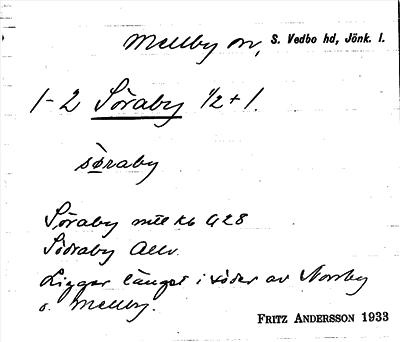 Mellby sn, S. Vedbo hd, Jönk. l.
1-2 Söraby 1/2+1.
søraby
Söraby mtl kb 428
Södraby Allv.
Ligger längst i söder av Norrby
o. Mellby.
FRITZ ANDERSSON 1933